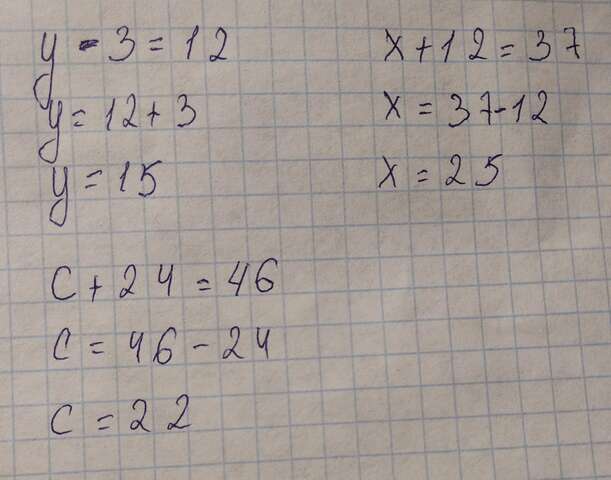 y - 3 = 12
y = 12 + 3
y = 15
x + 12 = 37
x = 37 - 12
x = 25
c + 24 = 46
c = 46 - 24
c = 22